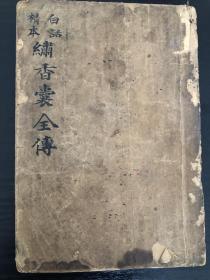 白話
繡本
繡香囊全傳